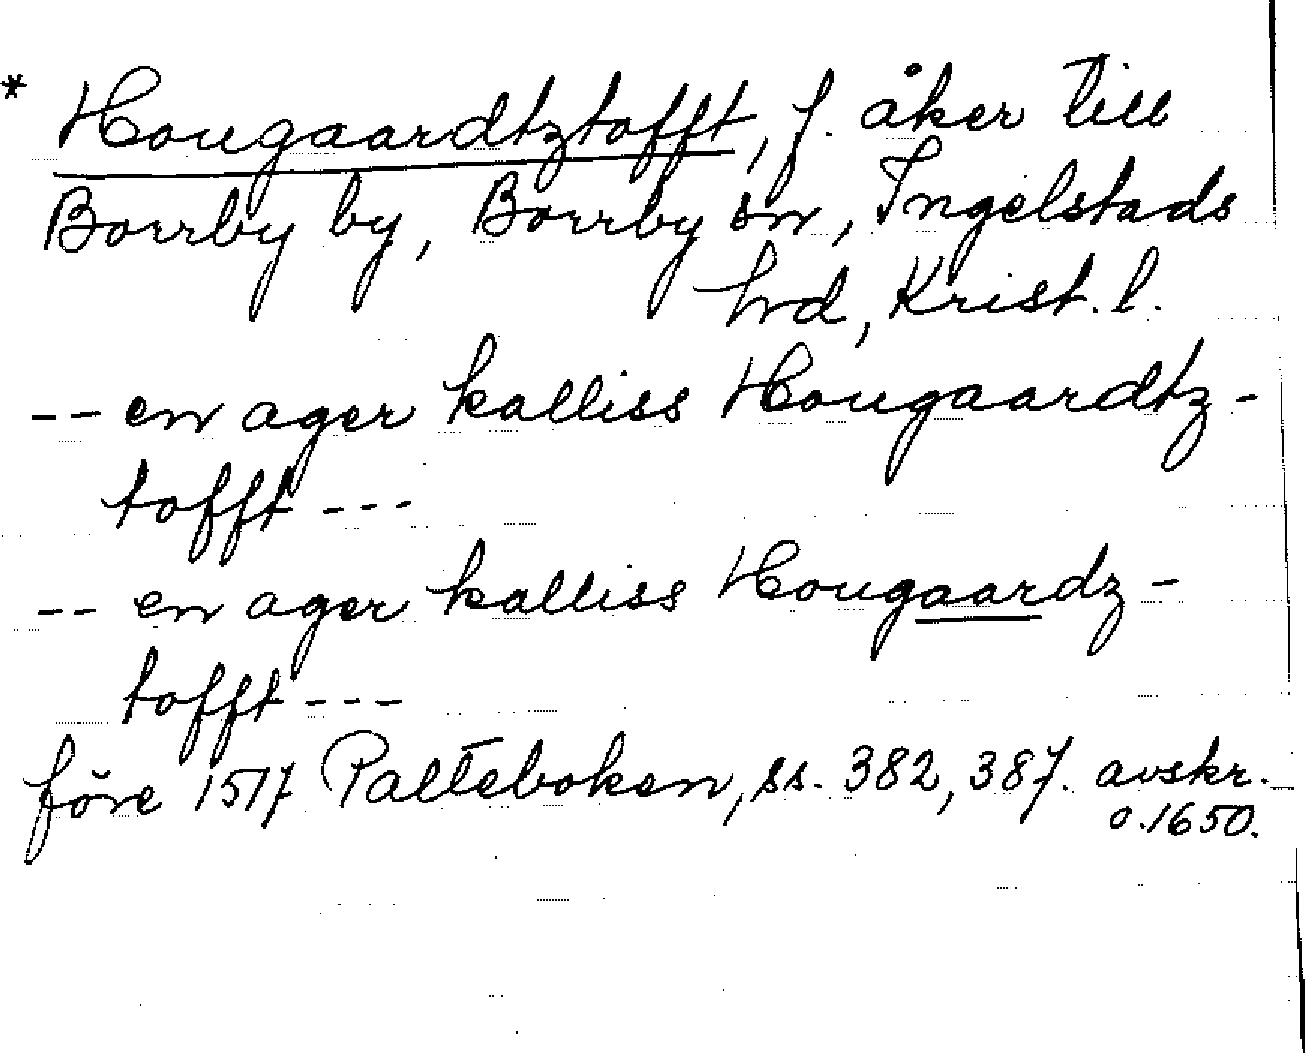 * Hougaardtztofft, f. åker till
Borrby by, Borrby sn, Ingelstads
hrd, Krist. l.
-- en ager kalliss Hougaardtz-
tofft ---
-- en ager kalliss Hougaardz-
tofft ---
före 1517 Palteboken, ss. 382, 387. avskr.
o. 1650.